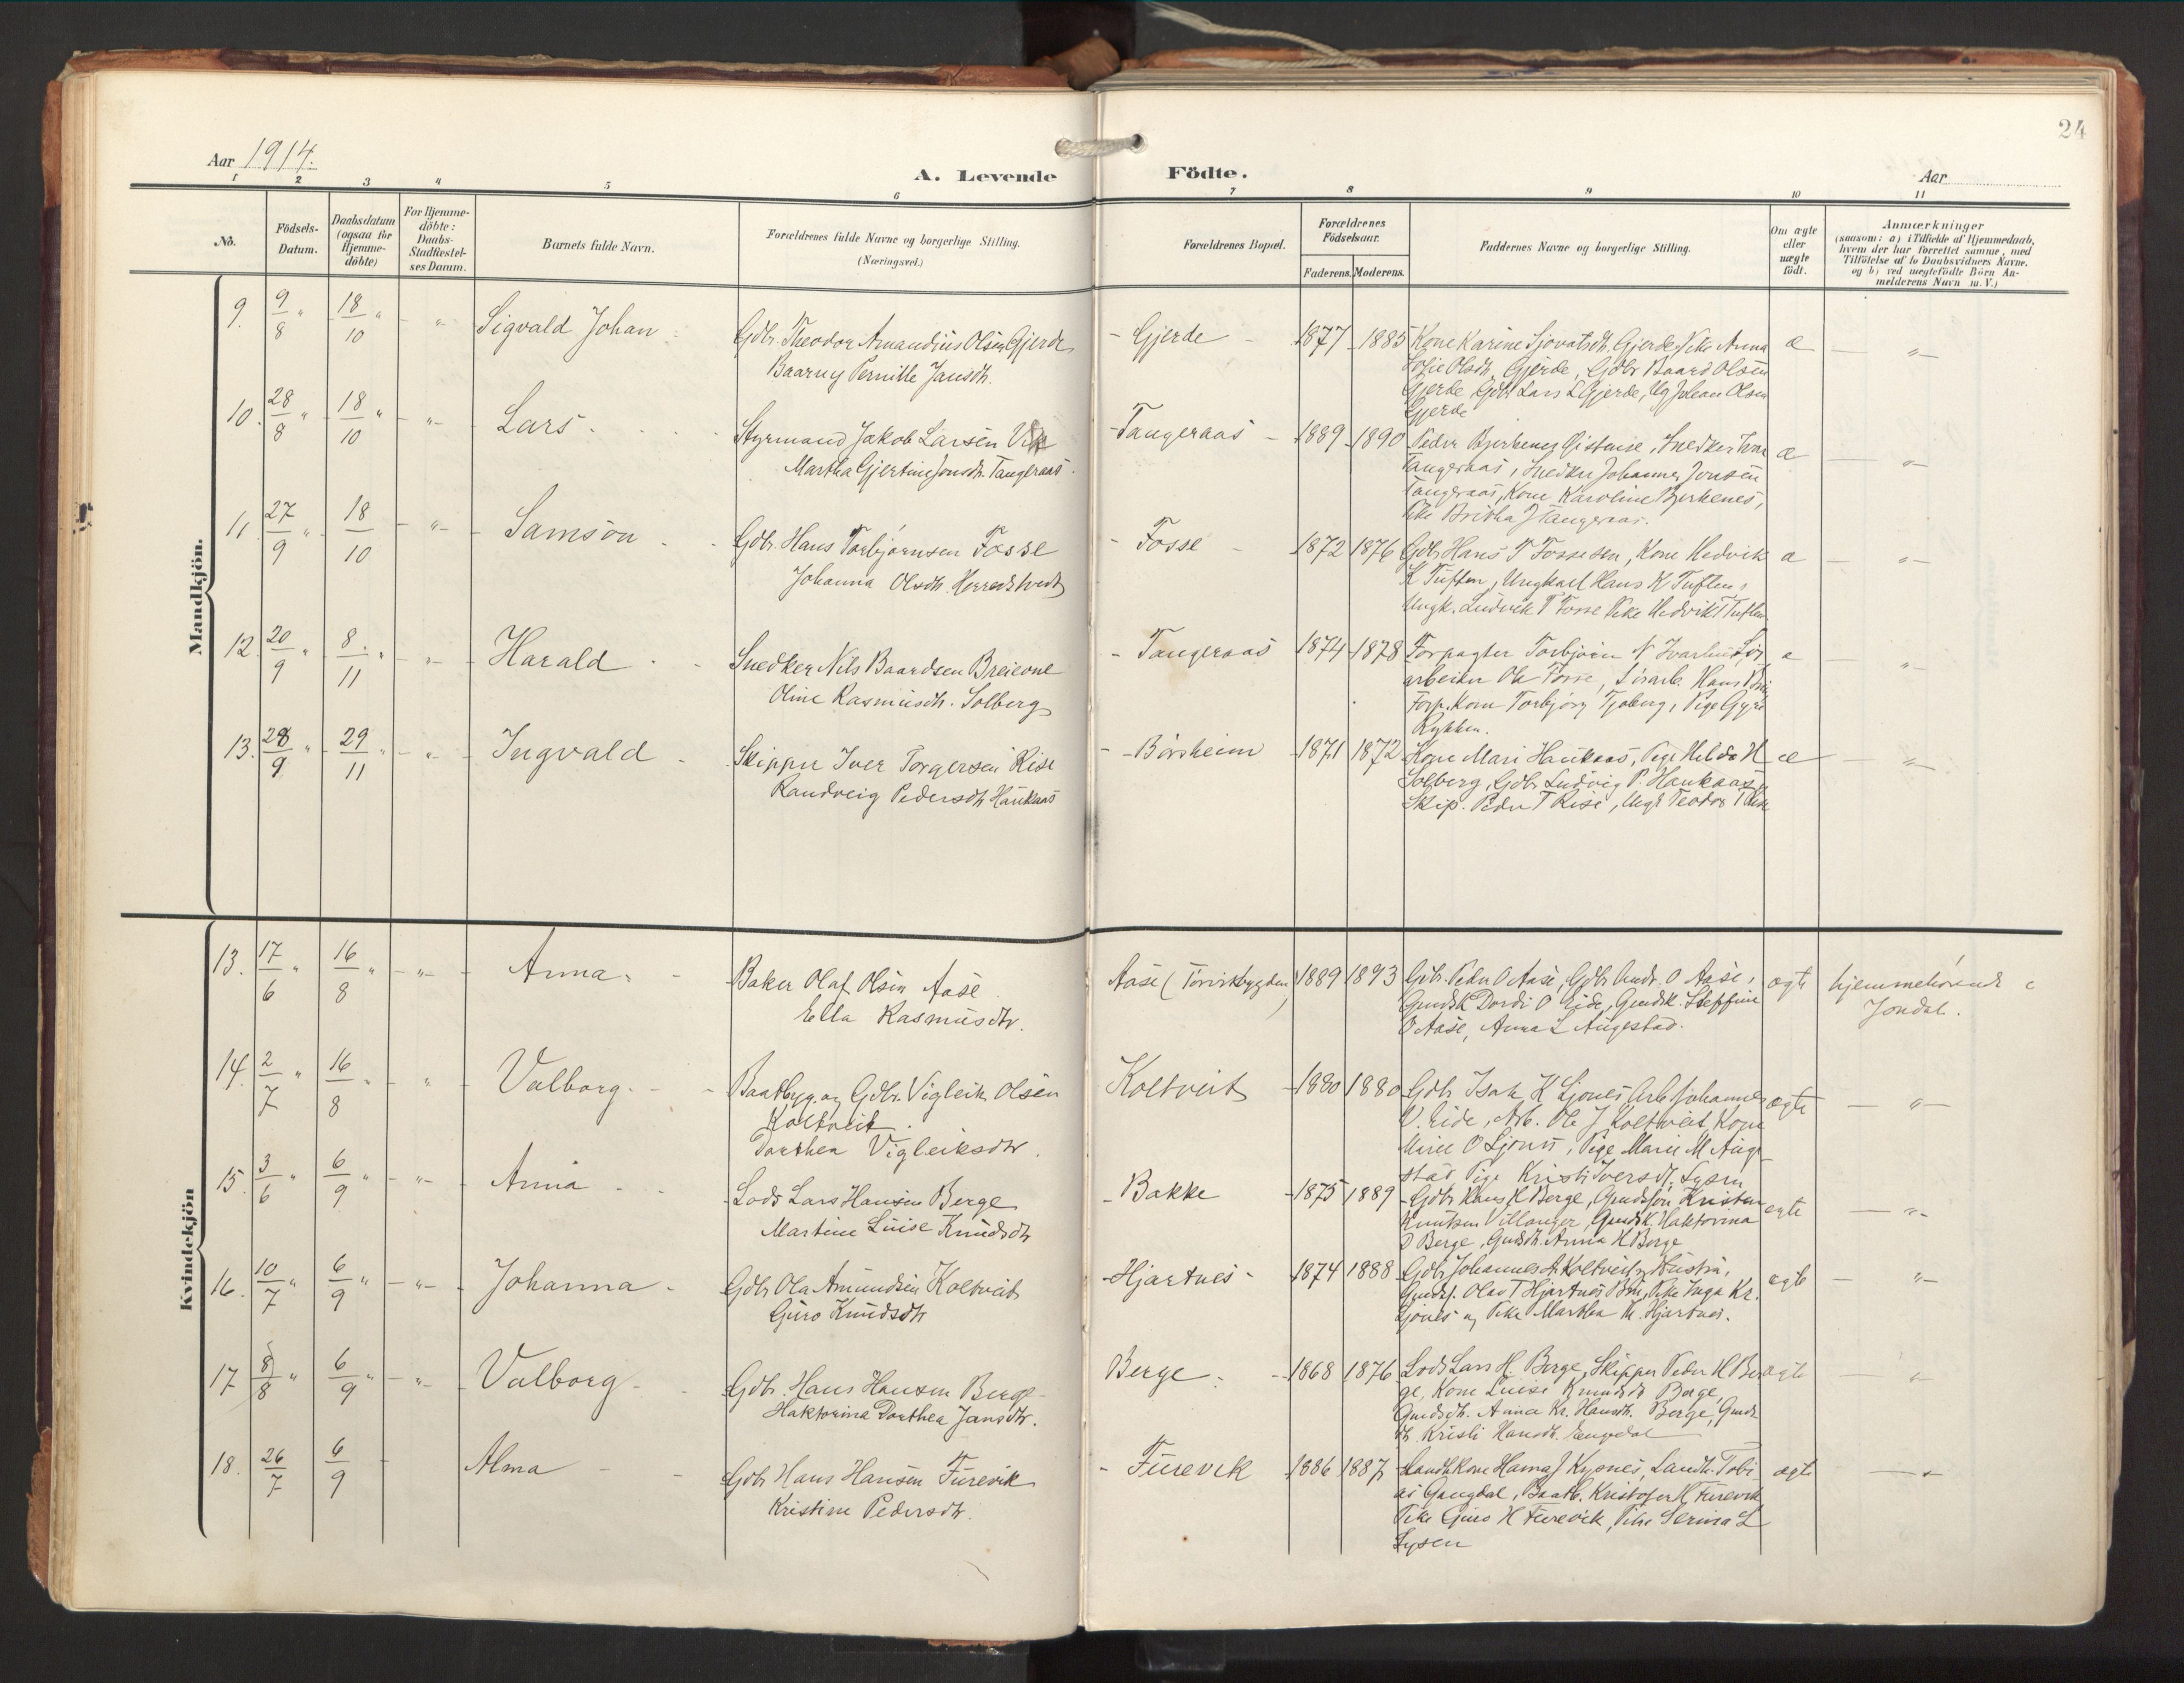 24
Aar 1914.
A. Levende Födte.
Aar
1 2 3 4 5 6 7 8 9 10 11
No.
Födsels-Datum.
Daabsdatum (ogsaa for Hjemme-döbte)
For Hjemme-döbte: Daabs-Stadfæstel-ses Datum.
Barnets fulde Navn.
Forældrenes fulde Navne og borgerlige Stilling. (Næringsvei.)
Forældrenes Bopæl.
Forældrenes Födselsaar.
Faderens. Moderens.
Faddernes Navne og borgerlige Stilling.
Om ægte eller uægte födt.
Anmærkninger
(saasom: a) i Tilfælde af Hjemmedaab,
hvem der har forrettet samme, med
Tilföielse af to Daabsvidners Navne.
og b) ved uægtefödte Börn An-
melderens Navn m. V.)
Mandkjön.
9. 9/8 " 18/10 " - " - Sigvald Johan - Gdbr. Theodor Amandius Olsen Gjerde - Gjerde - 1877 - 1885 Kone Karine Sjovatsdt. Gjerde, Pike Anna æ - " -
Baarny Pernille Jansdt.
Sofie Olsdt. Gjerde, Gdbr Baard Olsen
Gjerde, Gdbr Lars L Gjerde, Ug Johan Olsen
Gjerde
10. 28/8 " 18/10 " - " - Lars. Styrmand Jakob Larsen Vik - Tangeraas - 1889 - 1890 Peder Bjerkenes, Snedker Ivar æ - " -
Martha Gjertine Jonsdt. Tangeraas
Tangeraas, Snedker Johannes Jonsen
Tangeraas, Kone Karoline Bjerkenes,
Pike Britha J Tangeraas.
11. 27/9 " 18/10 - " - Samson Gdbr. Hans Torbjørnsen Fosse - Fosse - 1872 1876 Gdbr Hans T Fosse sen, Kone Hedvik æ - " -
Johanna Olsdt. Herredstvedt
K Tuften, Ungkarl Hans K Tuften,
Ungk. Ludvik T Fosse Pike Hedvik T Tuften
12. 20/9 " 8/11 " - " - Harald Snedker Nils Baardsen Breione - Tangeraas 1874 - 1878 Forpagter Torbjørn N æ - " -
Oline Rasmusdt. Solberg
arbeider Ole Fosse, Hans
Forp. Kone Torbjørg Tjoberg, Pige Gyri
Rykken.
13. 28/9 " 29/11 " - " - Ingvald - Skipper Iver Torgersen Rise - Børsheim - 1871 1872 Kone Mari Haukaas, Pige Hilda H æ - " -
Randveig Pedersdt. Haukaas
Solberg, Gdbr. Ludvig P. Haukaas,
Skip. Peder T Rise, Ungk Teodor T Rise
Kvindekjön
13. 17/6 " 16/8 " - " - Anna. - Baker Olaf Olsen Aase Aase (Torvikbygden) 1889 1893 Gdbr. Peder O Aase, Gdbr Andr. O Aase, ægte hjemmehørende i
Ella Rasmusdtr.
Gmdsk Dordi O Eide, Gmdsk. Steffine
Jondal.
O Aase, Anna L Augestad.
14. 2/7 " 16/8 " - " - Valborg. - Baatbyg. og Gdbr. Vigleik Olsen Koltveit - 1880 1880 Gdbr Isak K Ljones, Arb. Johannes ægte - " -
Koltveit.
V. Eide, Arb. Ole J Koltveit, Kone
Dorthea Vigleiksdtr.
O Ljones, Pige Marie M Auge-
stad Pige Kristi Iversdt. Lysen
15. 3/6 " 6/9 " - " - Anna - Lods Lars Hansen Berge - Bakke - 1875 1889 - Gdbr Hans H Berge, Gmdssøn Kristen ægte - " -
Martine Luise Knudsdtr
Knutsen Villanger, Gmdsk. Haktorina
D Berge, Gmdsdt. Anna H Berge
16. 10/7 " 6/9 " - " - Johanna - Gdbr Ola Amundsen Koltveit - Hjartnes - 1874 1888 Gdbr Johannes A. Koltveit og Hustru, ægte - " -
Guro Knudsdtr
Gmds. Olav T Hjartnes, Pike Inga Kr.
Ljones og Pike Martha K. Hjartnes.
17 8/8 " 6/9 " - " - Valborg - Gdbr. Hans Hansen Berge - Berge - 1868 1876 Lods Lars H Berge, Skipper Peder H Ber- ægte - " -
Haktorina Dorthea Jansdtr.
ge, Kone Luise Knudsdt Berge,
Gmdsdt. Anna Kr. Hansdt. Berge, Gmds
dt. Kristi Hansdt. Engedal
18. 26/7 6/9 - Alma - Gdbr Hans Hansen Furevik - Furevik 1886 1887 Landh. Kone Hanna J Kysnes, Landh. Tobi- ægte - " -
Kristine Pedersdtr.
as Gangdal, Baatb. Kristofer H Furevik
Pike Guro H Furevik, Pike Serina L
Lysen